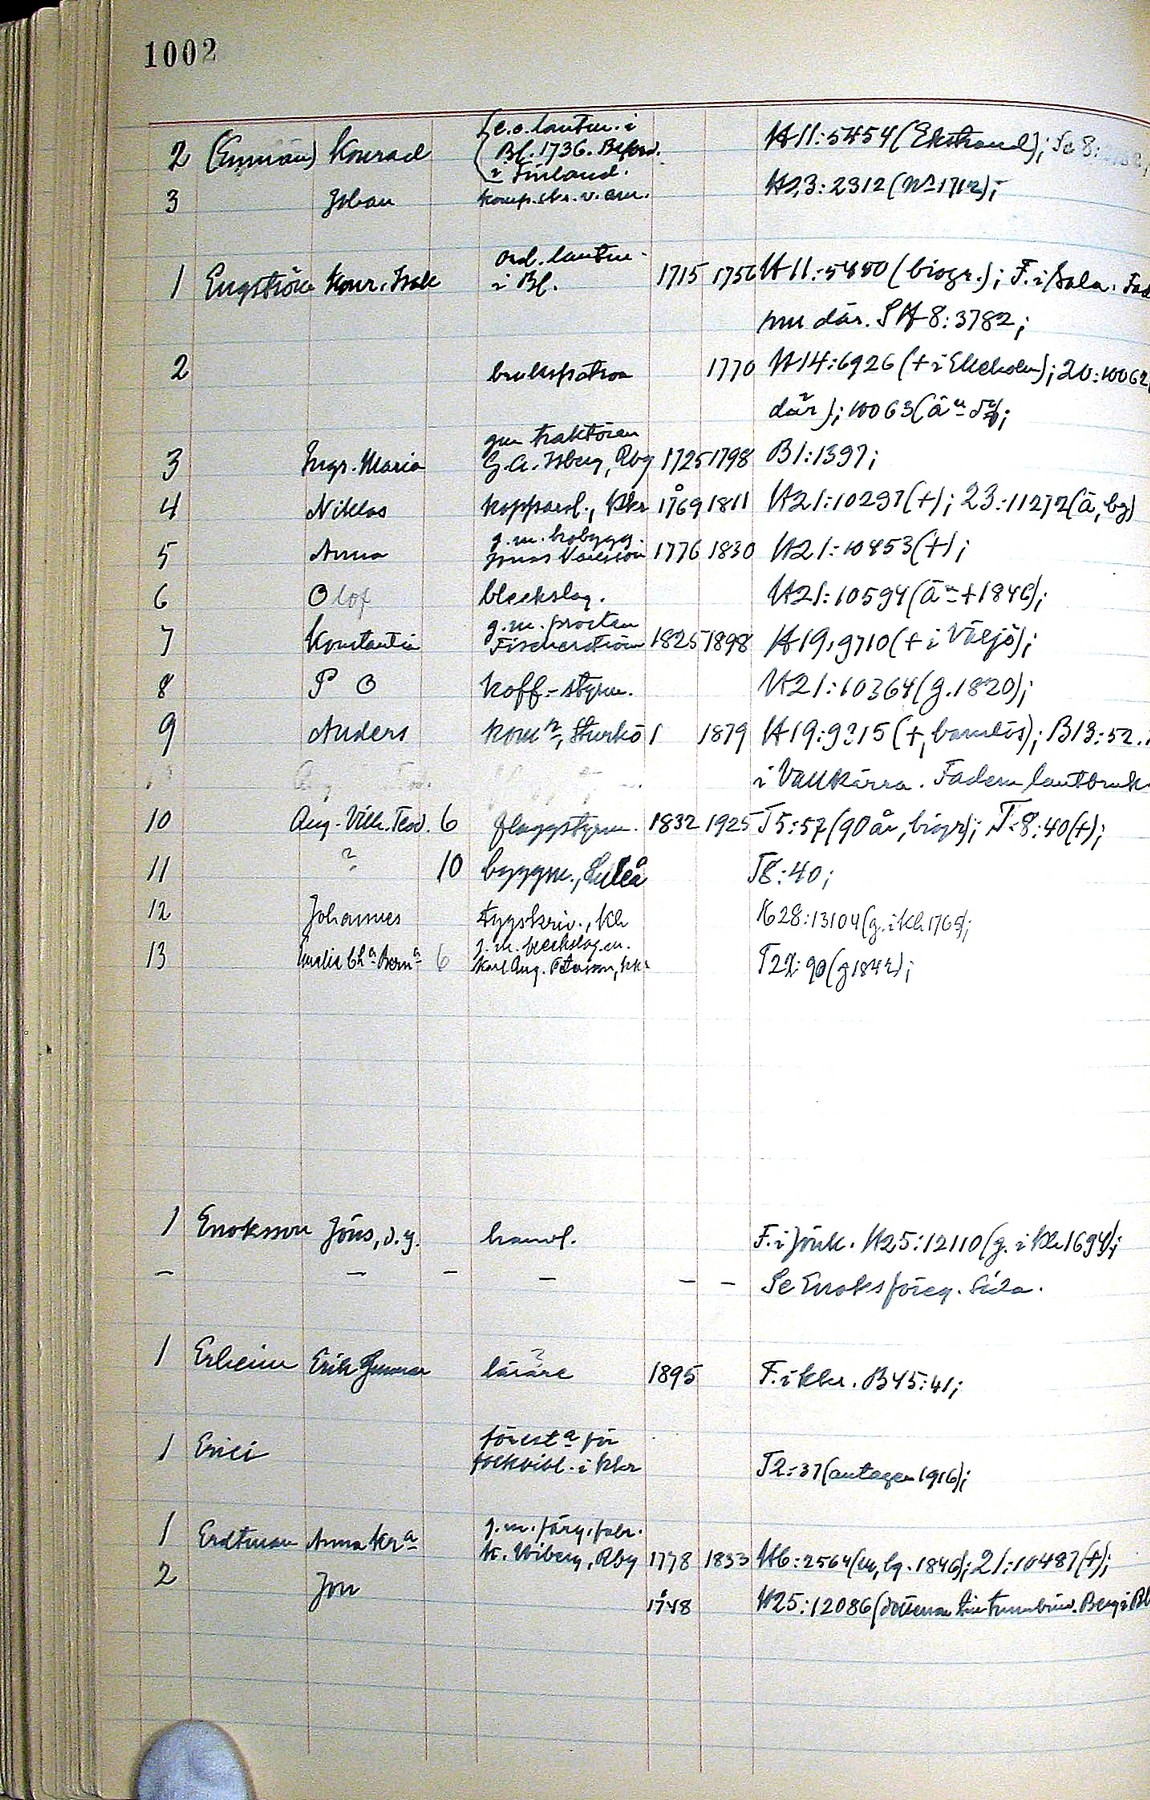 1002
2 (Enman) Konrad { e.o. lantm. i Bl. 1736. Bef. i Finland. H11:5454 (Ekstrand); Se 8:
3 Johan komp.skr. v. am. H23:2312 (No 1712);
1 Engström Konr. Isak ord. lantm. i Bl. 1715 1756 H11:5480 (biogr.); F. i Sala. Fad
där. SH8:3782;
2 brukspatron 1770 H14:6926 (+ i Ekeholm); 20:10062
där); 10063 (än
3 Ingr. Maria gm traktören G.A. Isberg, Rby 1725 1798 B1:1397;
4 Niklas koppard., Kkr 1769 1811 H21:10297 (+); 23:11272 (ä, bg)
5 Anna g.m. brobygg. Jonas 1776 1830 H21:10453 (+);
6 Olof bleckslag. H21:10594 (än + 1846);
7 Konstantia g.m. prosten Fischerström 1825 1898 H19:9710 (+ i Växjö);
8 P O koff.-styrm. H21:10364 (g. 1820);
9 Anders kom:r, Sturkö 1 1879 H19:9215 (+, barnlös); B13:52.
i Vallkärra. Fadern lantbruk
10 Aug. Vilh. Teod. 6 flaggstyrm. 1832 1925 T5:57 (90 år, biogr); T8:40 (+);
11 ? 10 byggm., Luleå T8:40;
12 Johannes tygskriv., Kh K28:13104 (g. i Kh 1765);
13 Emelia Cha Berna 6 g.m. bleckslag.m. Karl Aug. Peterson, Kkr T22:90 (g 1842);
1 Enoksson Jöns, d.y. handl. F. i Jönk. H25:12110 (g. i Kh 1694);
– – – – – – Se Enoks föreg. sida.
1 Erheim Erik Gunnar lärare ? 1895 F. i Kkr. B45:41;
1 Erici föresta för folkbibl. i Kkr T2:37 (antagen 1916);
1 Erdtman Anna Kra g.m. färg.fabr. K. Wiberg, Rby 1778 1833 H6:2564 (m, bg. 1846); 21:10487 (+);
2 Jon 1748 H25:12086 (dotterna Berg i Bl